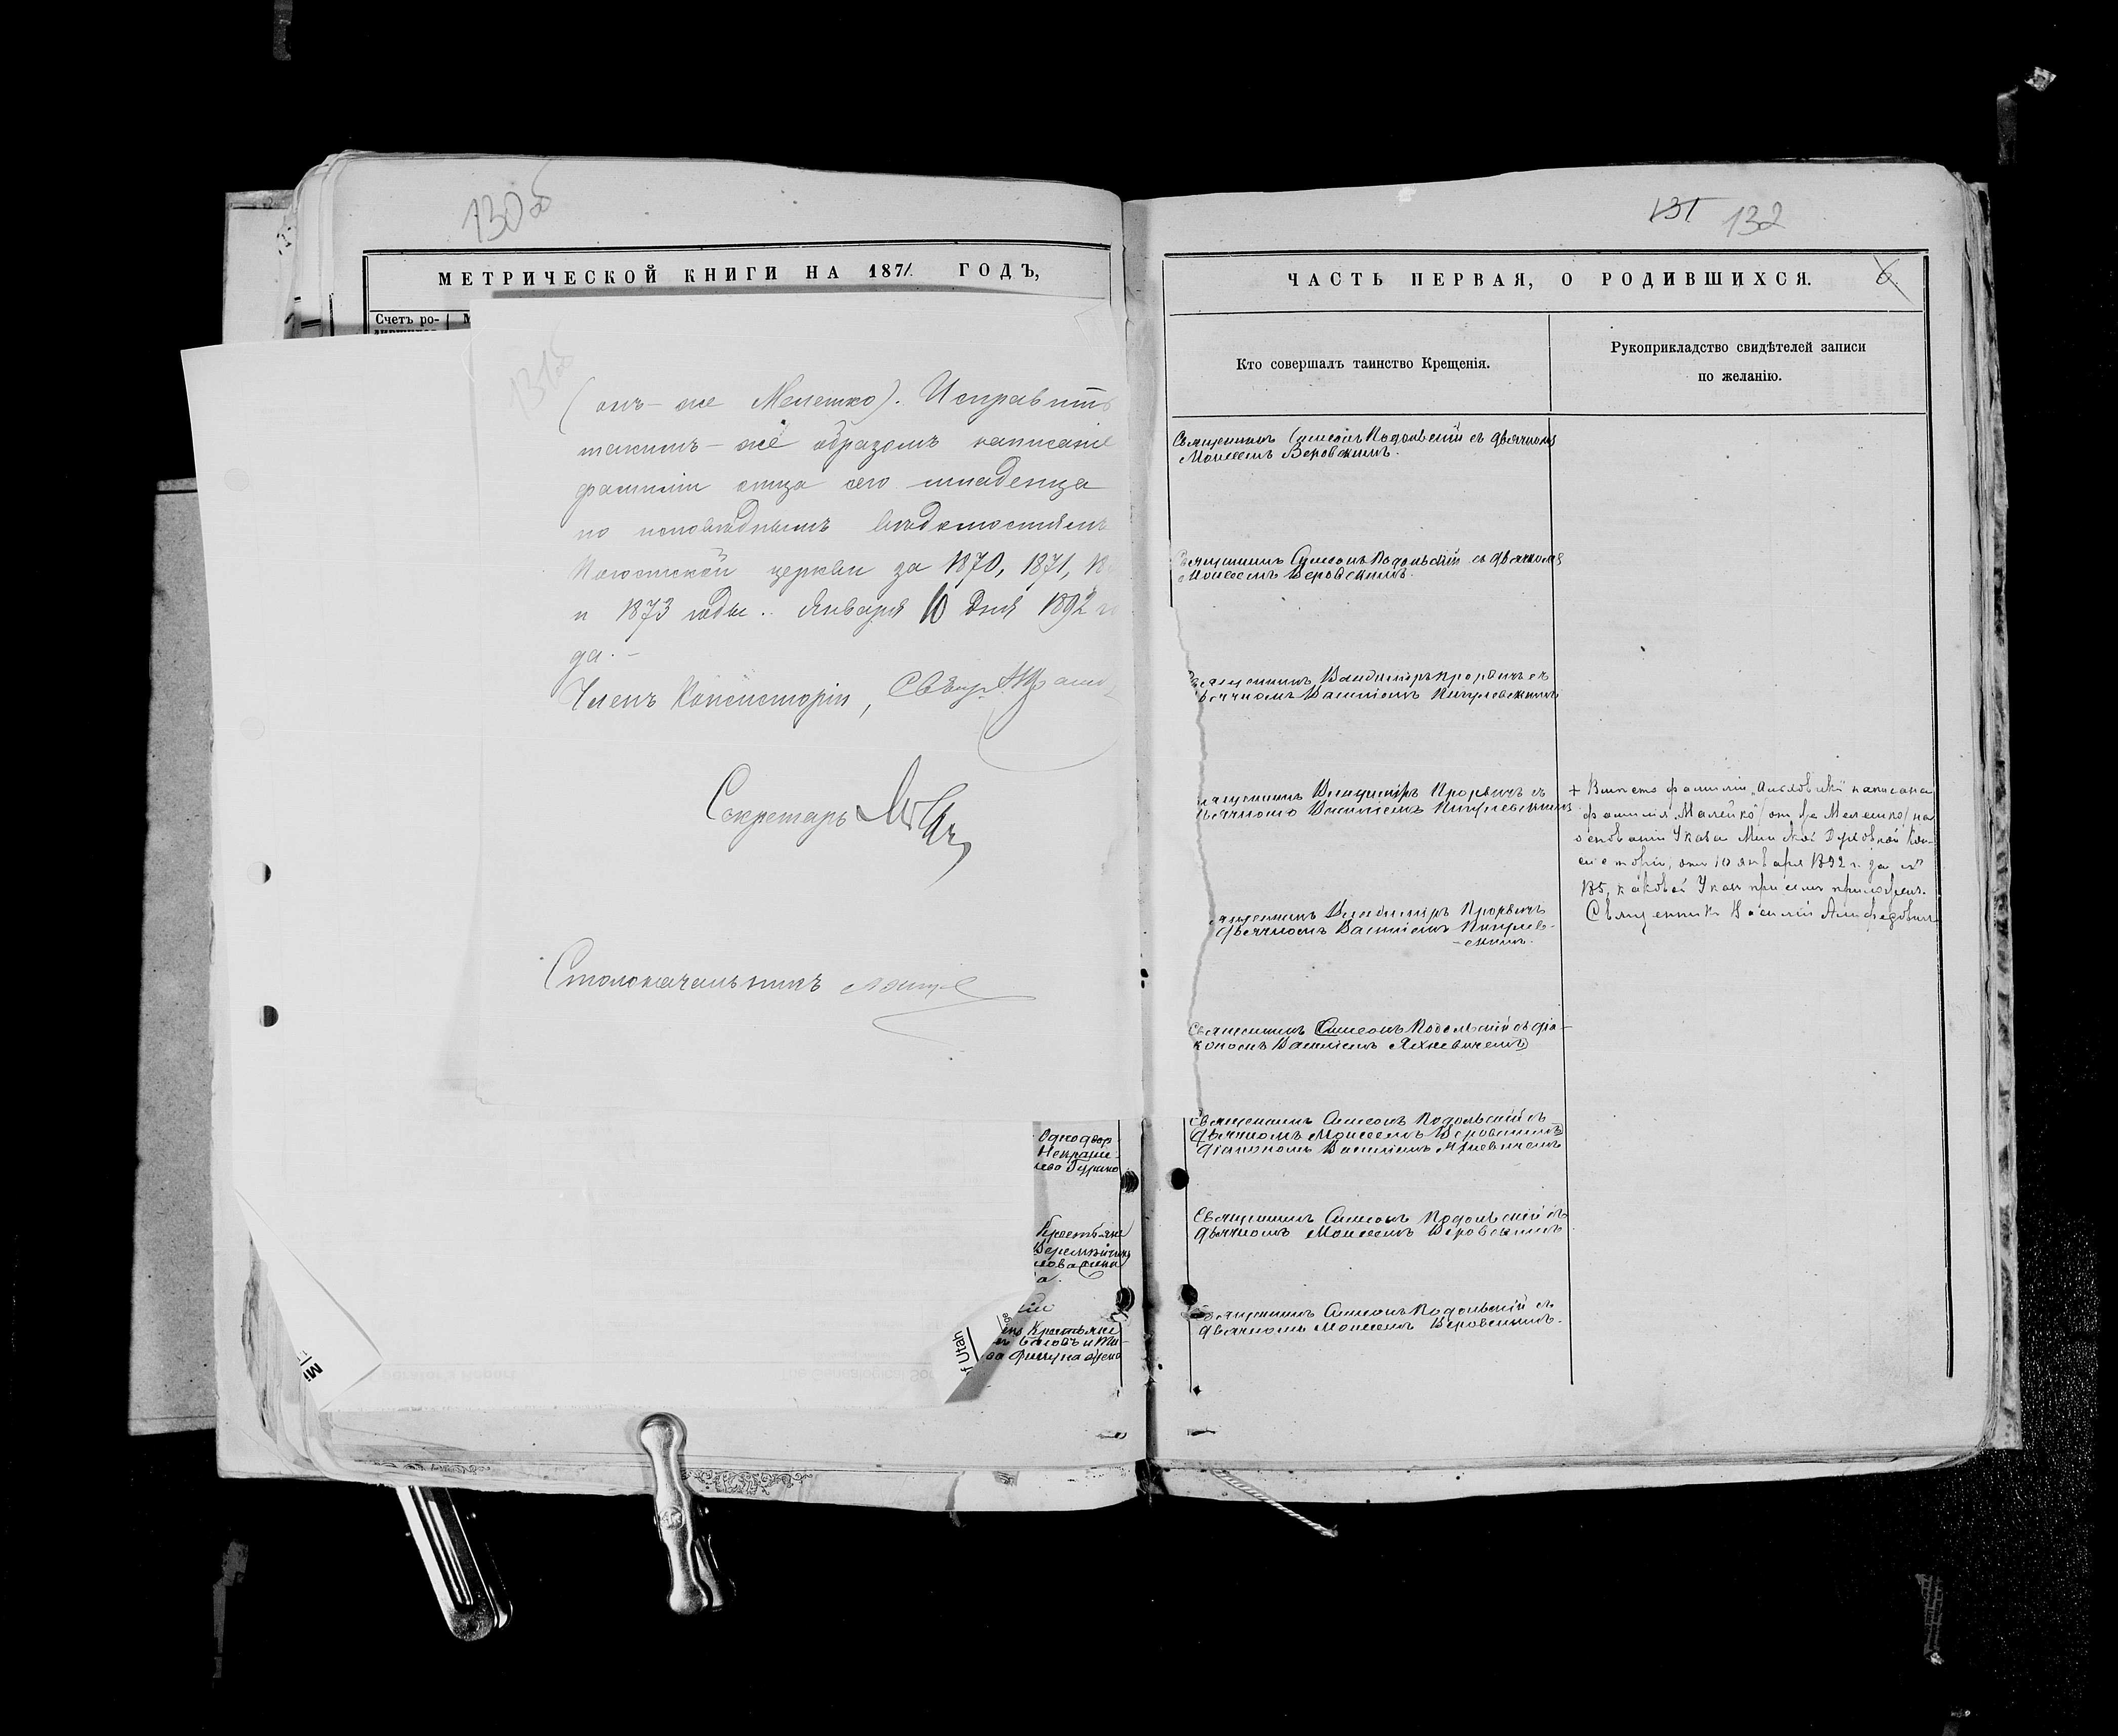 130об
МЕТРИЧЕСКОЙ КНИГИ НА 1871 ГОДЪ,
Счетъ ро-
131об
(онъ-же Мелешко). Исправить
такимъ-же образомъ написаніе
фамиліи отца сего младенца
по исповѣднымъ вѣдомостямъ
церкви за 1870, 1871, 18
и 1873 годы. Января 10 дня 1892 го
да.-
Членъ Консисторіи,
Секретарь
Столоначальникъ
Одноdвор-
Крестьяне
Крестьяне
f Utah
Mi
131 132
ЧАСТЬ ПЕРВАЯ, О РОДИВШИХСЯ. 6
Кто совершалъ таинство Крещенія.
Рукоприкладство свидѣтелей записи
по желанію.
Священникъ Симеонъ Подольскій съ дьячкомъ
Моисеемъ Веровскимъ.
Священникъ Симеонъ Подольскій съ дьячкомъ
Моисеемъ Веровскимъ.
Священникъ Владиміръ Прорвичъ съ
дьячкомъ Василіемъ
Священникъ Владиміръ Прорвичъ съ
дьячкомъ Василіемъ
+ Вмѣсто фамиліи написана
фамилія „Малейко" (онъ же Мелешко) на
основаніи Указа Минской Духовной Кон-
систоріи, отъ 10 января 1892 г. за №
185, каковой Указъ при семъ приложенъ.
Священникъ Василій
Священникъ Владиміръ Прорвичъ
дьячкомъ Василіемъ
-скимъ.
Священникъ Симеонъ Подольскій съ діа-
кономъ Василіемъ Яхневичемъ
Священникъ Симеонъ Подольскій съ
дьячкомъ Моисеемъ Веровскимъ
діакономъ Василіемъ Яхневичемъ
Священникъ Симеонъ Подольскій съ
дьячкомъ Моисеемъ Веровскимъ
Священникъ Симеонъ Подольскій съ
дьячкомъ Моисеемъ Веровскимъ.